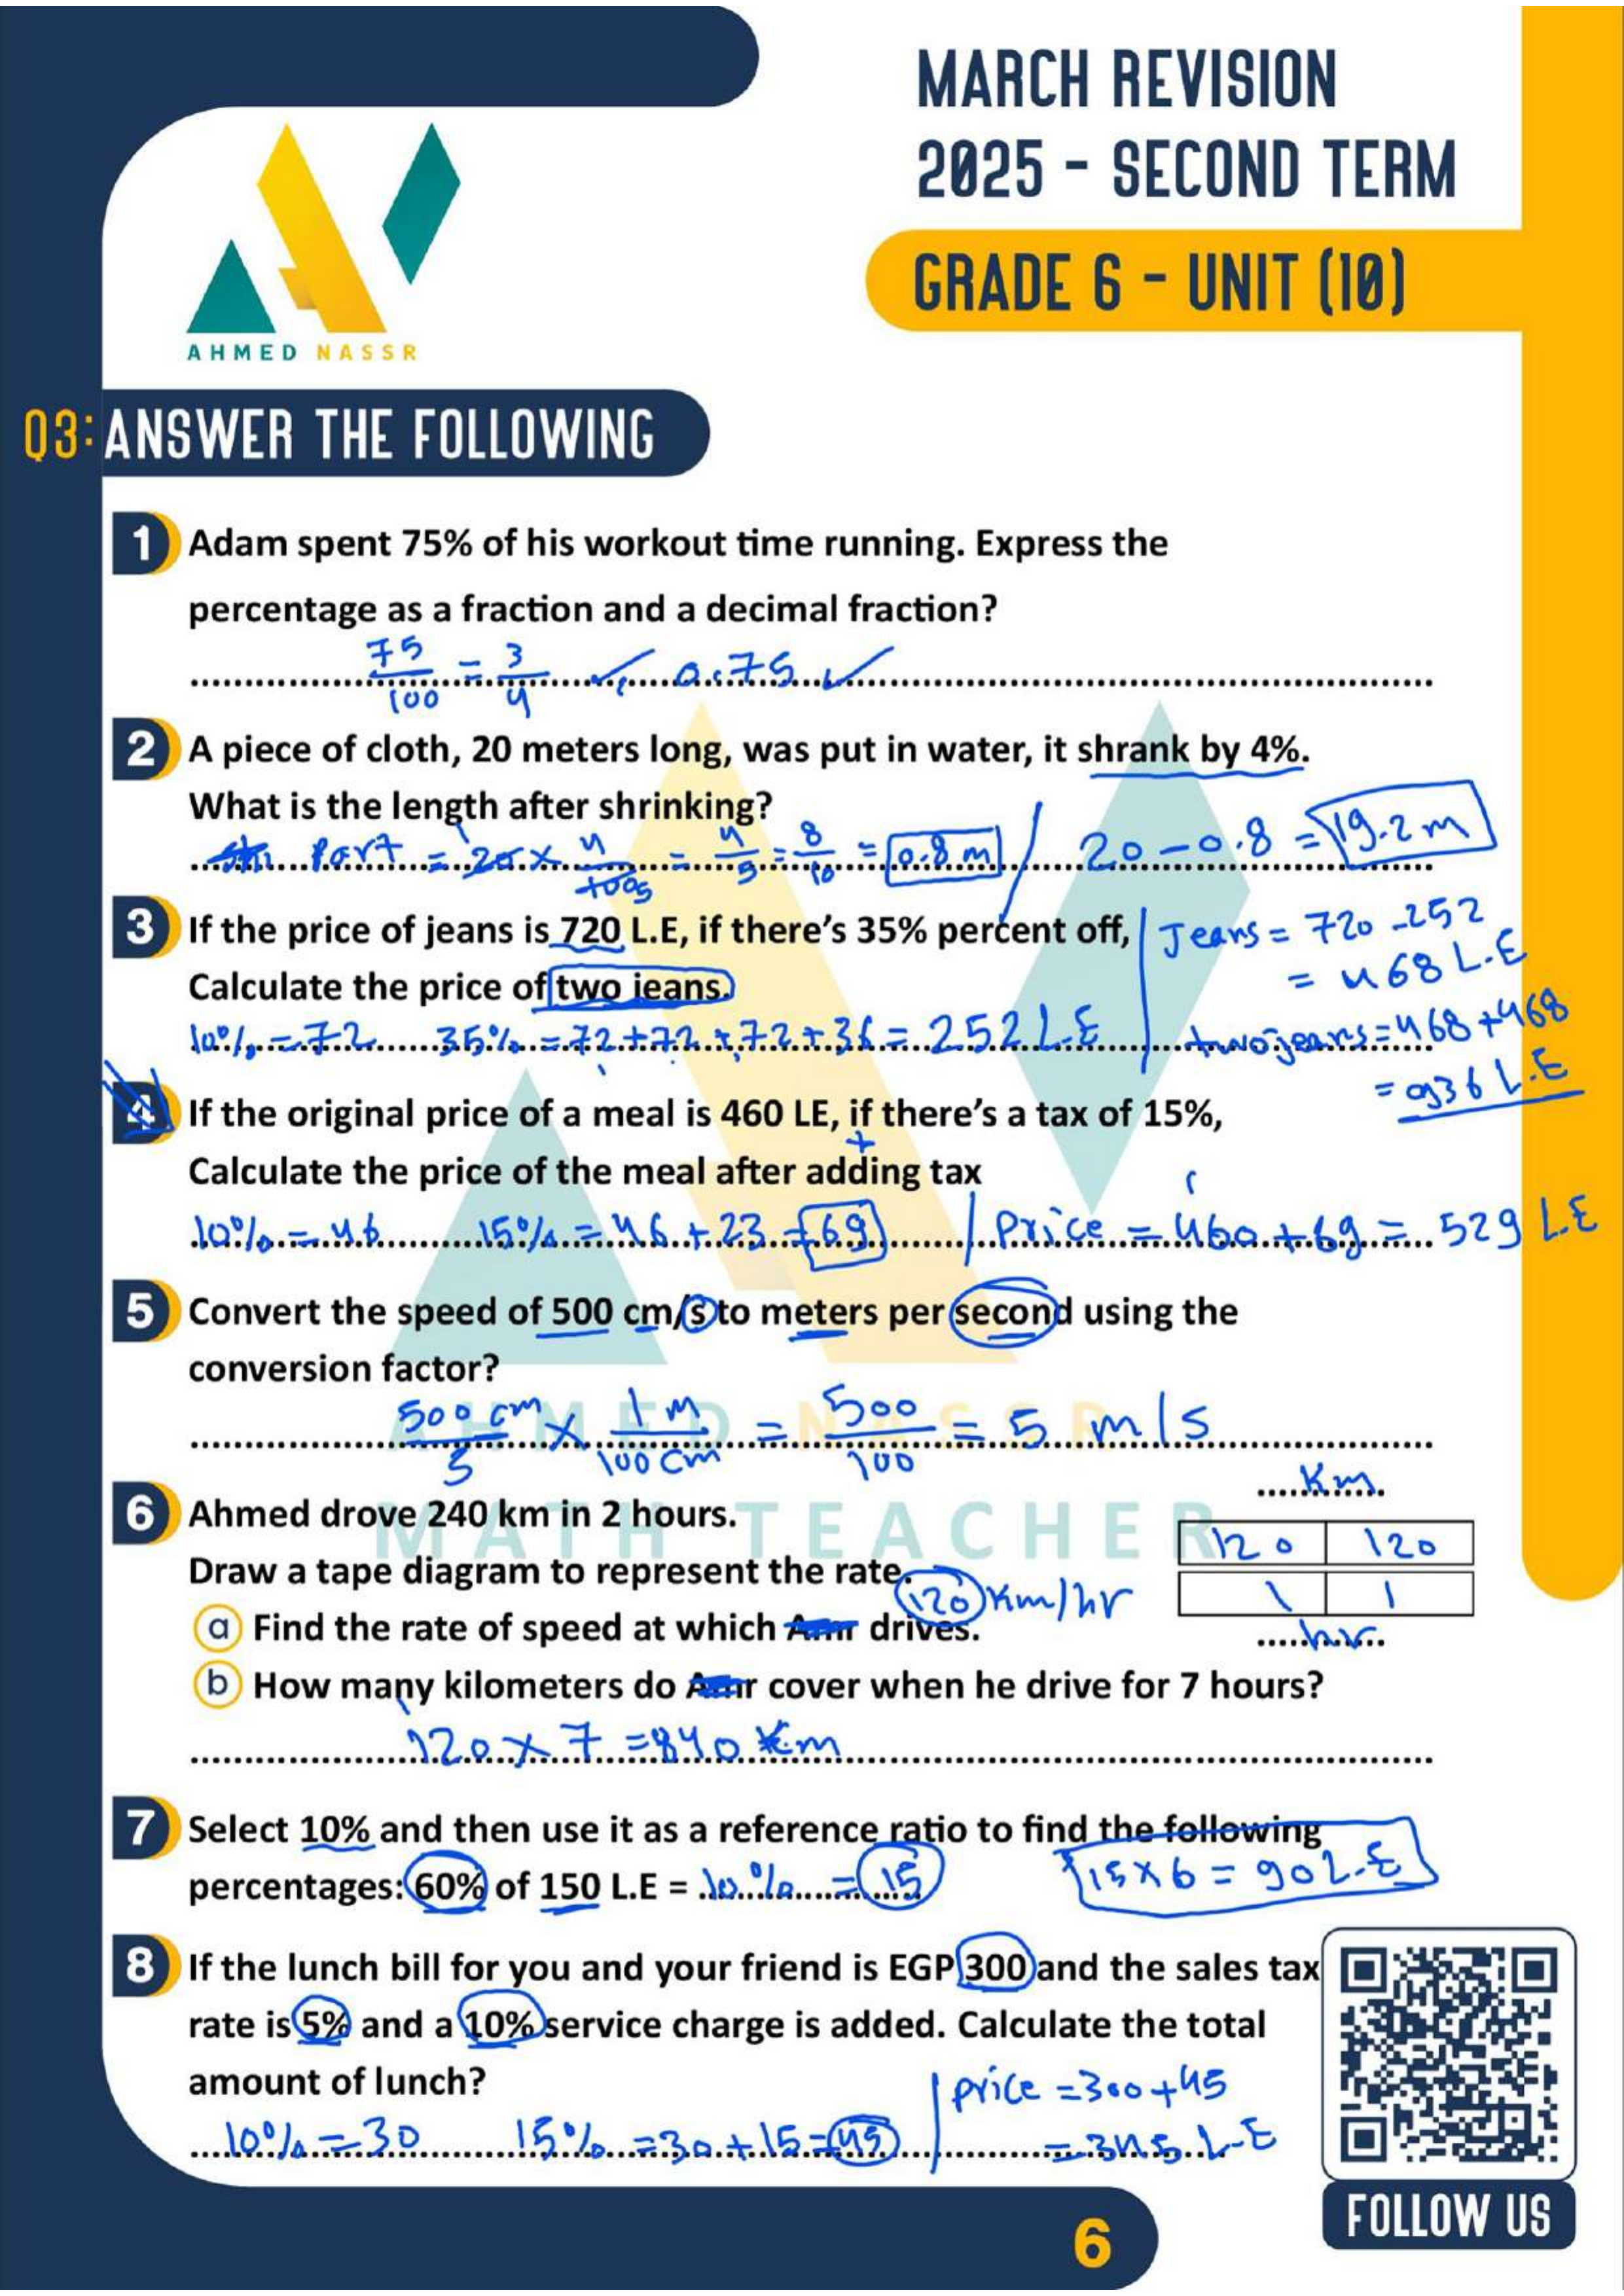 MARCH REVISION
2025 - SECOND TERM
GRADE 6 - UNIT (10)
AHMED NASSR
Q3: ANSWER THE FOLLOWING
1 Adam spent 75% of his workout time running. Express the
percentage as a fraction and a decimal fraction?
75/100 = 3/4 ✓, 0.75 ✓
2 A piece of cloth, 20 meters long, was put in water, it shrank by 4%.
What is the length after shrinking?
Part = 20 × 4/100 = 4/5 = 8/10 = 0.8 m / 20 - 0.8 = 19.2 m
3 If the price of jeans is 720 L.E, if there's 35% percent off,
Jeans = 720 - 252
= 468 L.E
Calculate the price of two jeans.
10% = 72 35% = 72 + 72 + 72 + 36 = 252 L.E
two jeans = 468 + 468
= 936 L.E
4 If the original price of a meal is 460 LE, if there's a tax of 15%,
+
Calculate the price of the meal after adding tax
10% = 46 15% = 46 + 23 = 69 | Price = 460 + 69 = 529 L.E
5 Convert the speed of 500 cm/s to meters per second using the
conversion factor?
500 cm/s × 1 m/100 cm = 500/100 = 5 m/s
AHMED NASSR
MATH TEACHER
Km
6 Ahmed drove 240 km in 2 hours.
120 120
Draw a tape diagram to represent the rate.
120 Km/hr
1 1
a Find the rate of speed at which Amr drives.
hr
b How many kilometers do Amr cover when he drive for 7 hours?
120 × 7 = 840 Km
7 Select 10% and then use it as a reference ratio to find the following
percentages: 60% of 150 L.E = 10% = 15
15 × 6 = 90 L.E
8 If the lunch bill for you and your friend is EGP 300 and the sales tax
rate is 5% and a 10% service charge is added. Calculate the total
amount of lunch?
price = 300 + 45
10% = 30 15% = 30 + 15 = 45
= 345 L.E
FOLLOW US
6